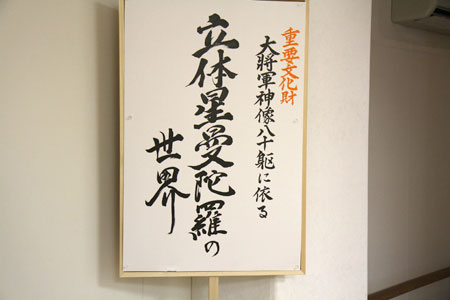 重要文化財
大將軍神像八十躯に依る
立体星曼陀羅の
世界